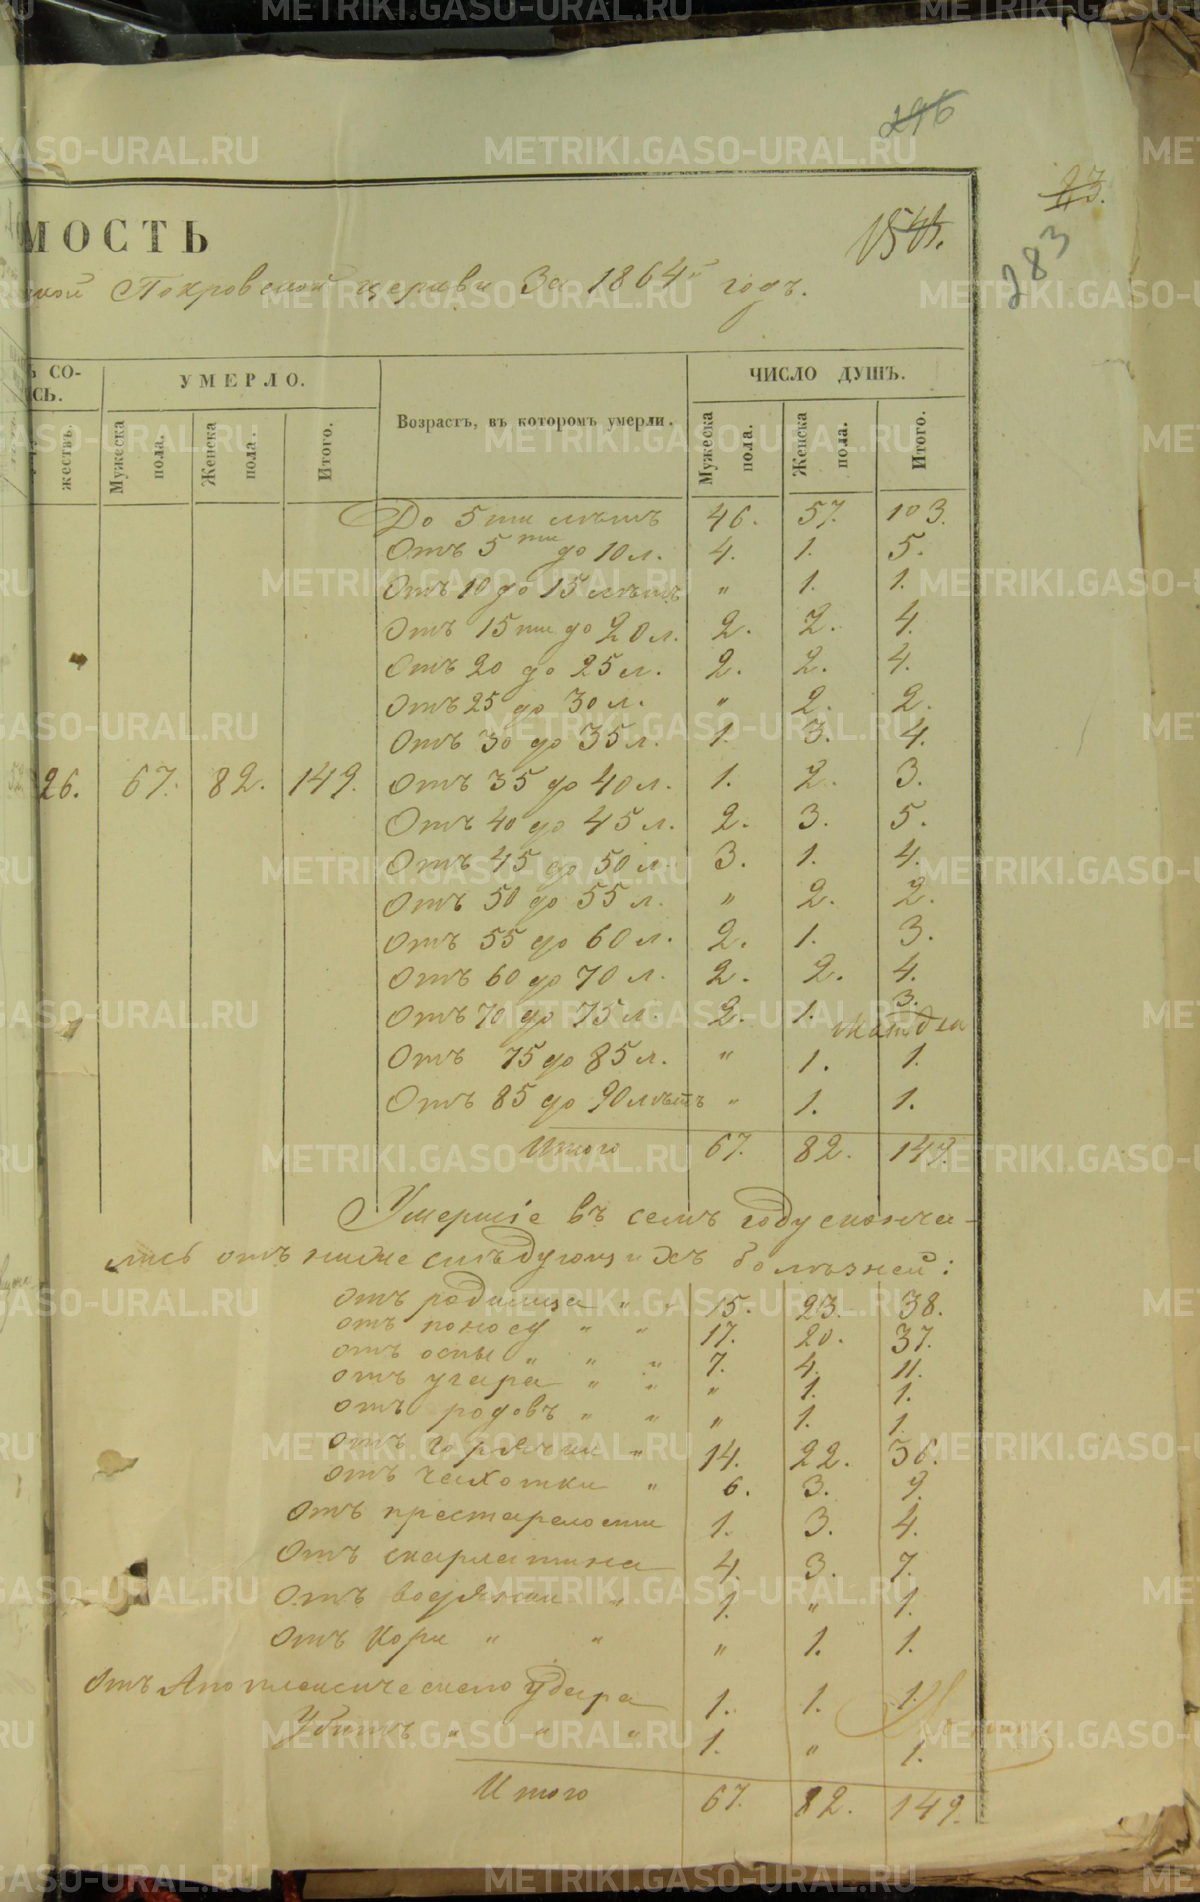 METRIKI.GASO-URAL.RU
296
23.
283
МОСТЬ
1544.
ской Покровской церкви За 1864й годъ.
Ъ СО-
СЬ.
жествъ.
УМЕРЛО.
Мужеска пола.
Женска пола.
Итого.
Возрастъ, въ которомъ умерли.
ЧИСЛО ДУШЪ.
Мужеска пола.
Женска пола.
Итого.
До 5ти лѣтъ 46. 57. 103.
Отъ 5ти до 10 л. 4. 1. 5.
Отъ 10 до 15 лѣтъ " 1. 1.
Отъ 15ти до 20 л. 2. 2. 4.
Отъ 20 до 25 л. 2. 2. 4.
Отъ 25 до 30 л. " 2. 2.
Отъ 30 до 35 л. 1. 3. 4.
26. 67. 82. 149. Отъ 35 до 40 л. 1. 2. 3.
Отъ 40 до 45 л. 2. 3. 5.
Отъ 45 до 50 л. 3. 1. 4.
Отъ 50 до 55 л. " 2. 2.
Отъ 55 до 60 л. 2. 1. 3.
Отъ 60 до 70 л. 2. 2. 4.
Отъ 70 до 75 л. 2. 1. 3.
Отъ 75 до 85 л. " 1. 1.
Отъ 85 до 90 лѣтъ " 1. 1.
Итого 67. 82. 149.
Умершіе въ семъ году сконча-
лись отъ нижеслѣдующихъ болѣзней:
отъ родимца " " 15. 23. 38.
отъ поносу " " 17. 20. 37.
отъ оспы " " " 7. 4. 11.
отъ угара " " " 1. 1.
отъ родовъ " " " 1. 1.
отъ горячки " 14. 22. 36.
отъ чахотки " 6. 3. 9.
Отъ престарелости 1. 3. 4.
Отъ скарлатина 4. 3. 7.
Отъ водянки " 1. " 1.
Отъ Кори " " " 1. 1.
Отъ Апоплексическаго Удара 1. 1. 1.
Убитъ " " " 1. " 1.
Итого 67. 82. 149.